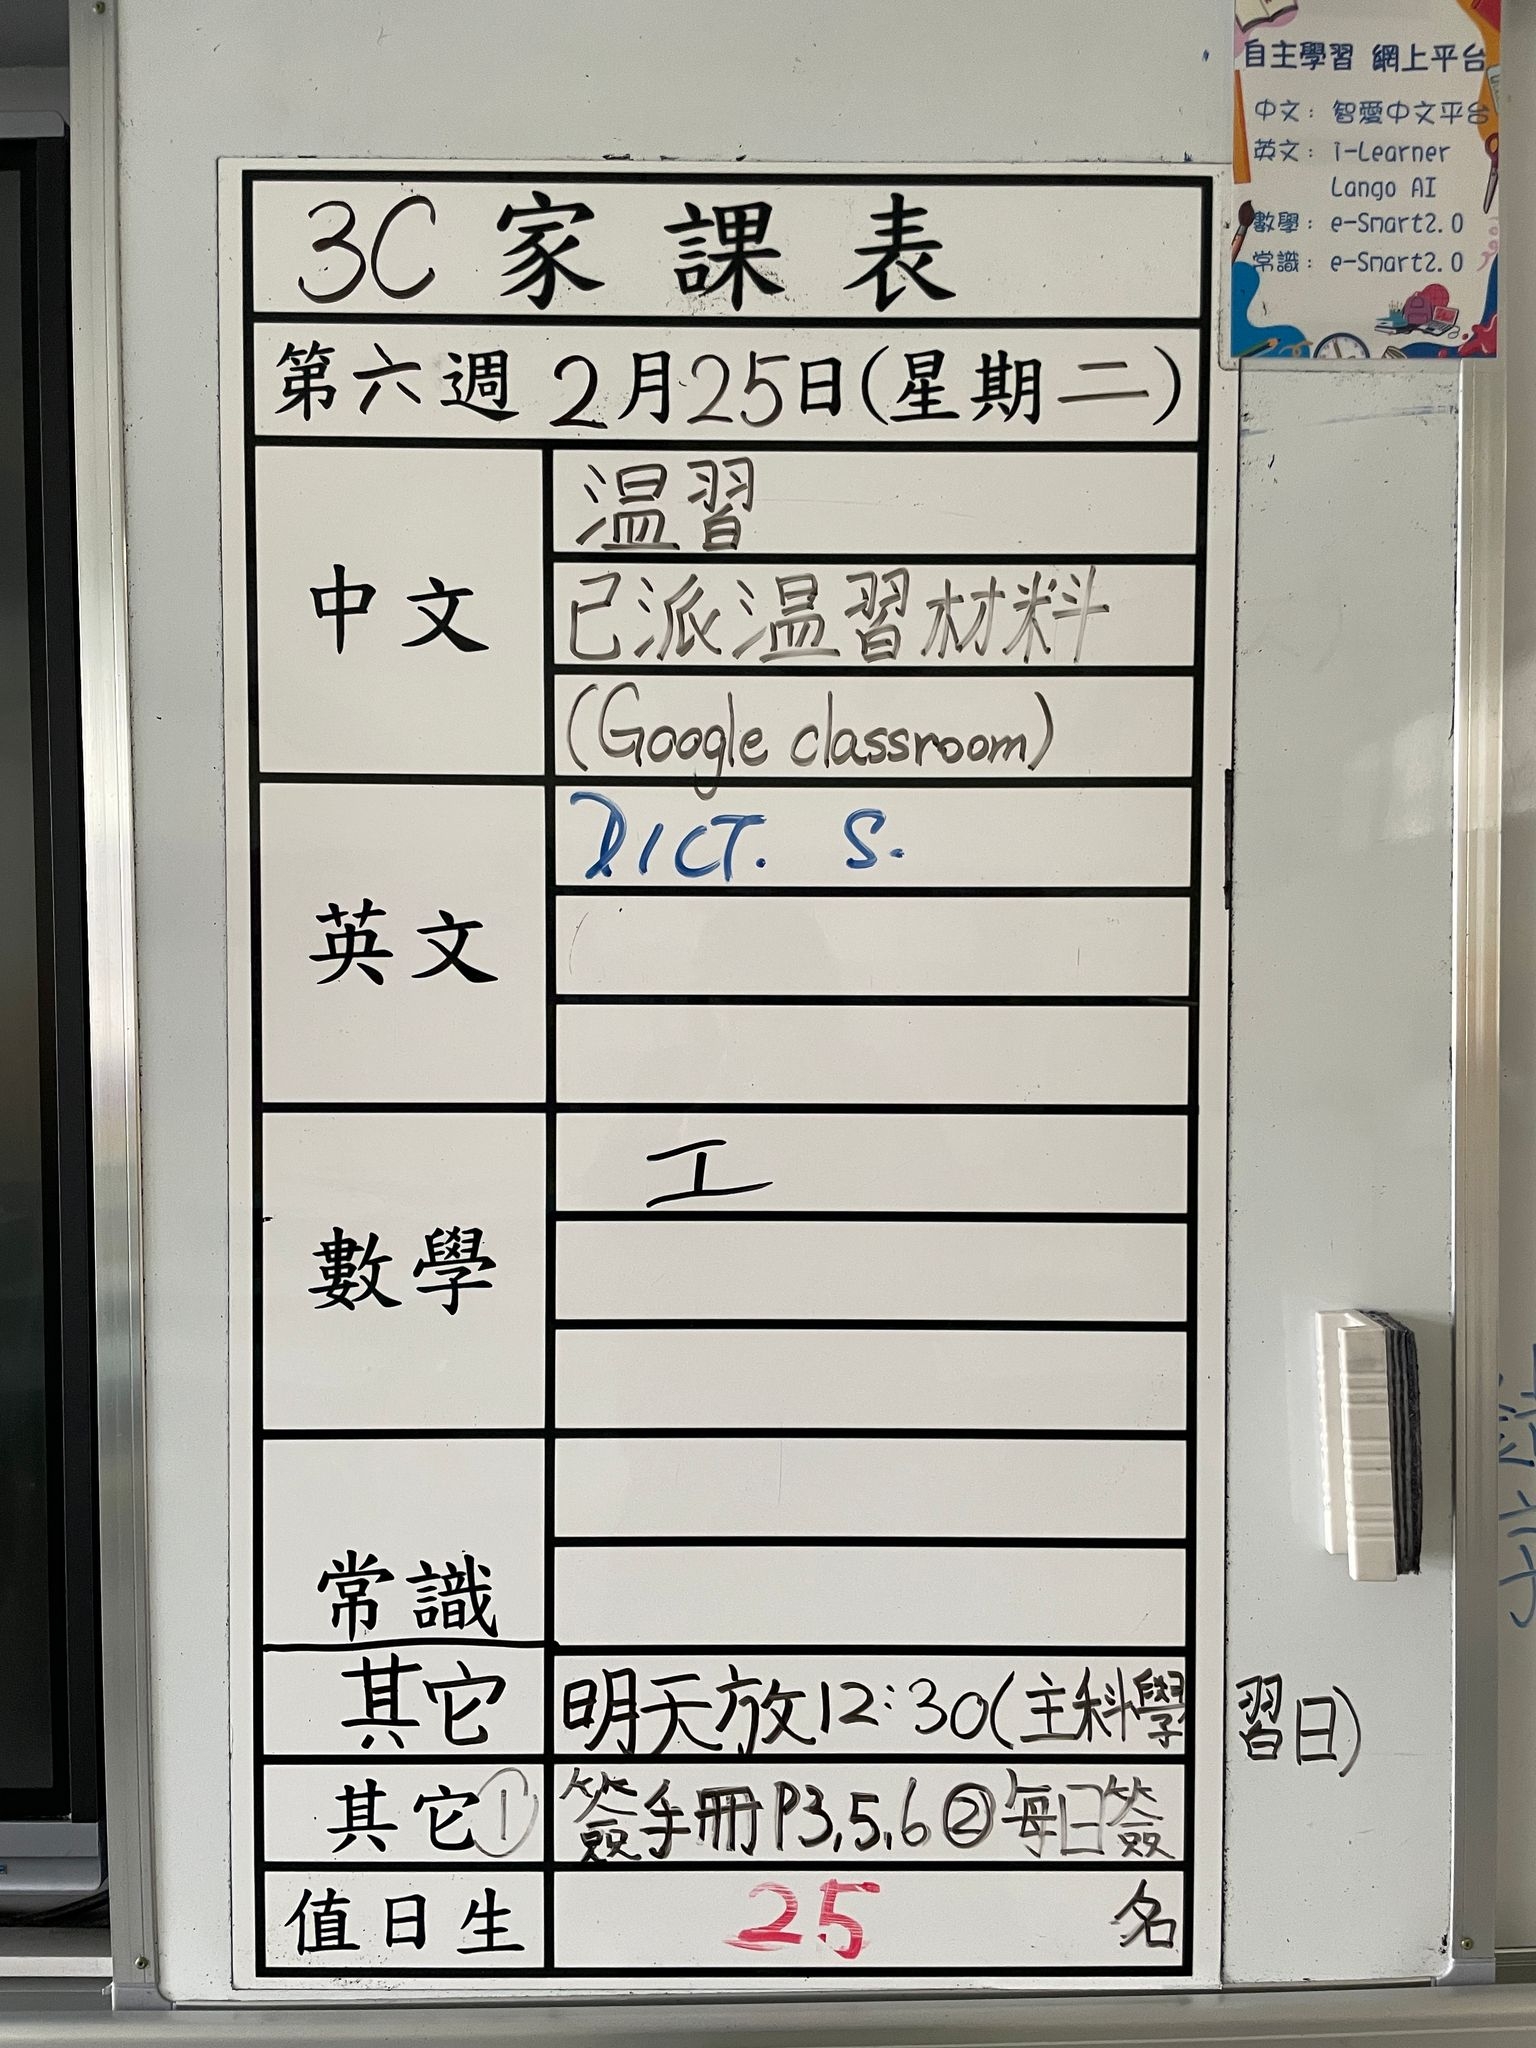 自主學習 網上平台
中文：智愛中文平台
英文：i-Learner
Lango AI
數學：e-Smart2.0
常識：e-Smart2.0
3C 家課表
第六週 2月25日(星期二)
中文
温習
已派温習材料
(Google classroom)
英文
DICT. S.
數學
工
常識
其它 明天放12:30(主科學習日)
其它① 簽手冊P3,5,6②每日簽名
值日生 25